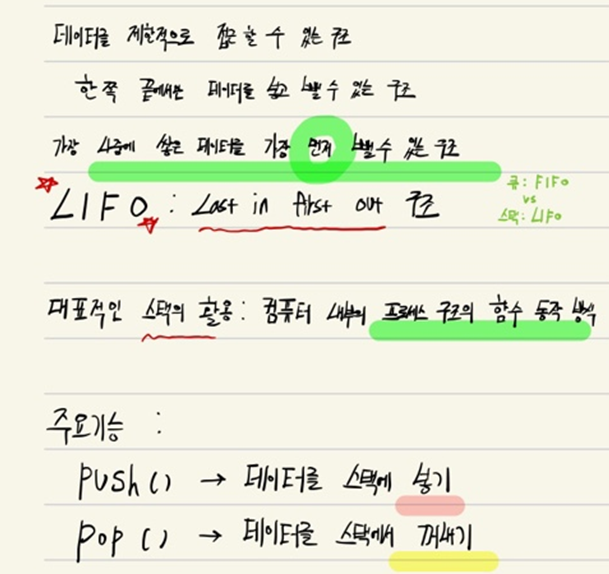 데이터를 제한적으로 접근할 수 있는 구조
한쪽 끝에서만 데이터를 넣고 뺄 수 있는 구조
가장 나중에 쌓은 데이터를 가장 먼저 뺄 수 있는 구조
LIFO : Last in first out 구조
큐: FIFO
vs
스택: LIFO
대표적인 스택의 활용: 컴퓨터 내부의 프로세스 구조의 함수 동작 방식
주요기능 :
push() → 데이터를 스택에 넣기
pop() → 데이터를 스택에서 꺼내기